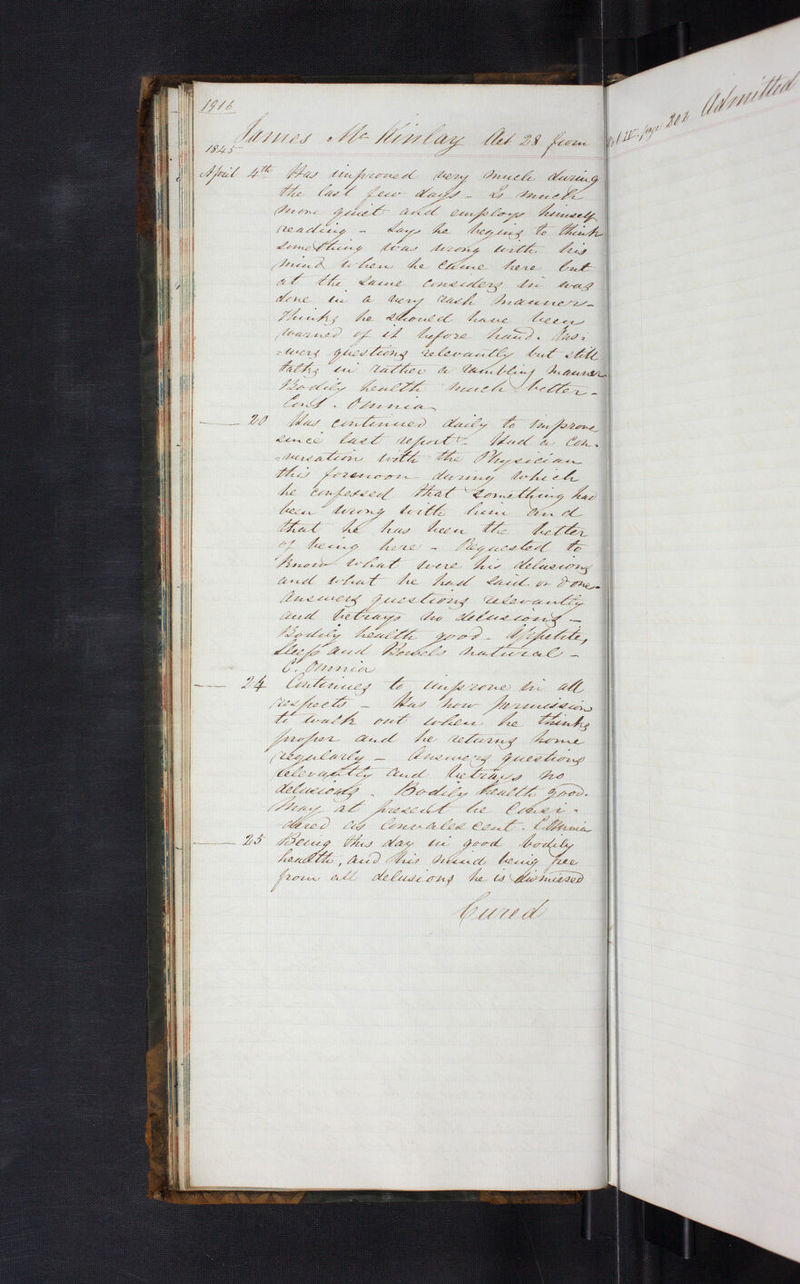 1916
James McKinlay Aet 28 from Vol IV page 202 Admitted
1845
April 4th Has improved very much during
the last few days - Is much
more quiet and employs himself
reading - Says he begins to think
something was wrong with his
mind when he came here but
at the same considers it was
done in a very rash manner -
Thinks he should have been
warned of it before hand. Ans:
=wers questions relevantly but still
talks in rather a rambling manner
Bodily health much better -
Cont. Omnia
20 Has continued daily to improve
since last report - Had a Con-
=versation with the Physician
this forenoon during which
he confessed that something had
been wrong with him and
that he has been the better
of being here - Requested to
know what were his delusions
and what he had said or done -
Answers questions relevantly
and betrays no delusions -
Bodily health good - Appetite,
Sleep and Bowels natural -
C. Omnia
24 Continues to improve in all
respects - Has now permission
to walk out when he thinks
proper and he returns home
regularly - Answers questions
relevantly and betrays no
delusions. Bodily health good.
May at present be Consi-
dered as Convalescent. C. Omnia
25 Being this day in good bodily
health, and his mind being free
from all delusions he is dismissed
Cured